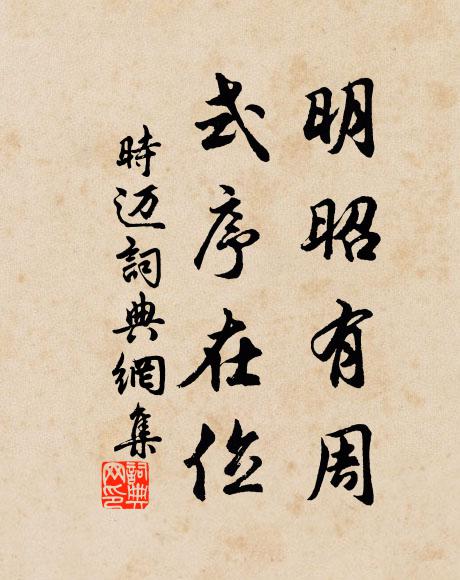 明昭有周
式序在位
時迈詞典網集
詞典
网印